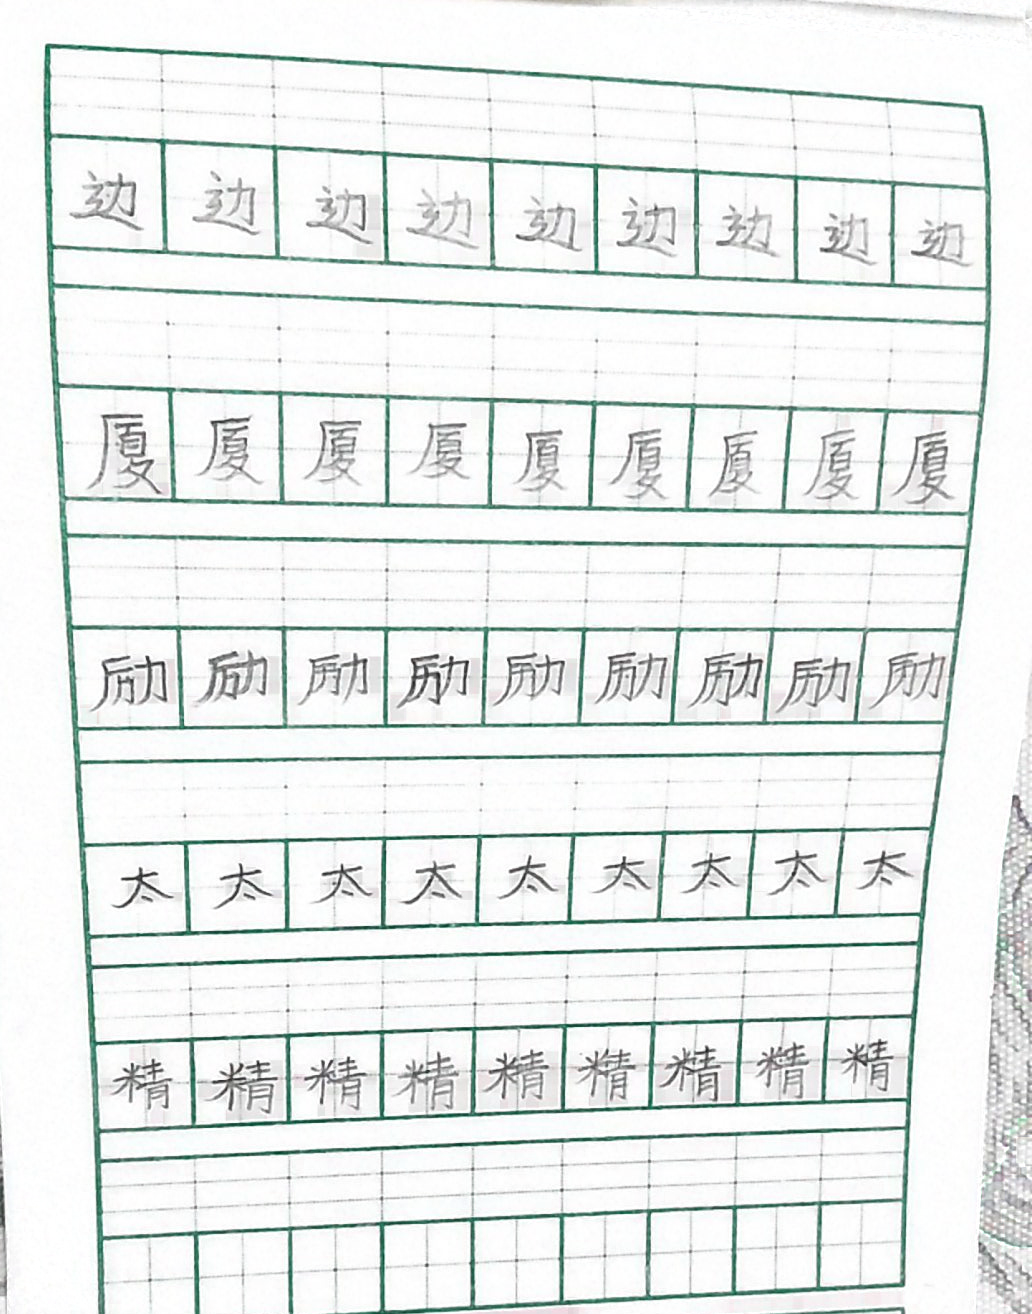 边边边边边边边边边
厦厦厦厦厦厦厦厦厦
励励励励励励励励励
太太太太太太太太太
精精精精精精精精精